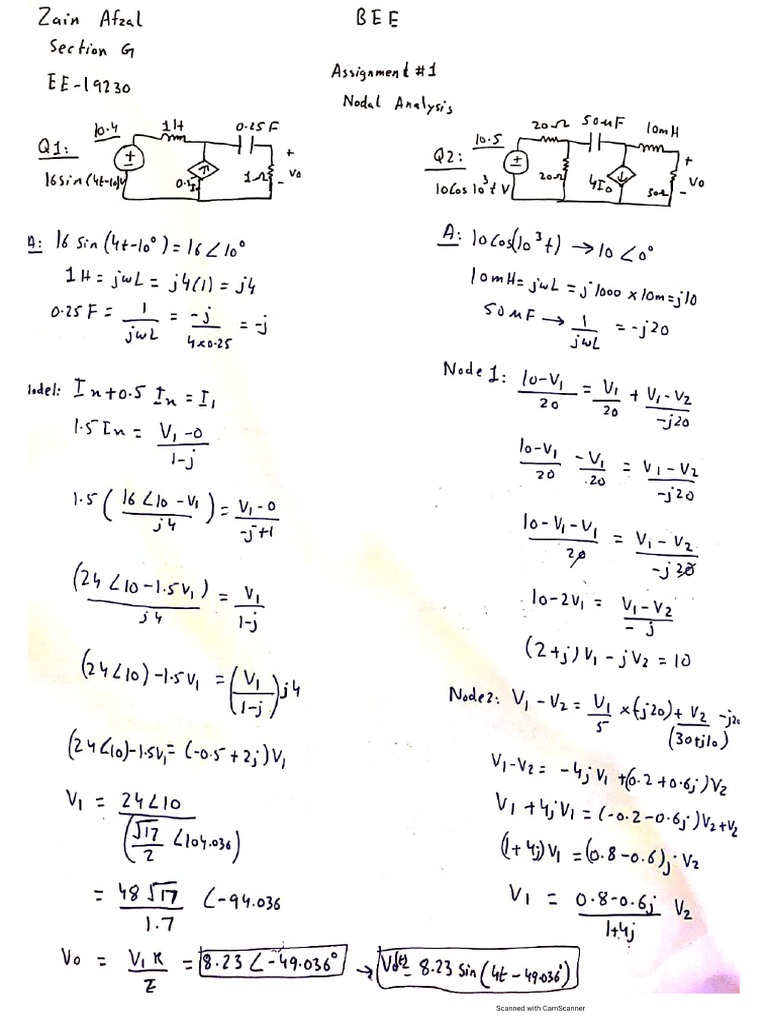 Zain Afzal
BEE
Section G
EE-19230
Assignment #1
Nodal Analysis
10.4
1H
0.25F
Q1:
16sin(4t-10)V
1Ω
+
Vo
-
10.5
20Ω
50uF
10mH
Q2:
10Cos10³t V
20Ω
4Io
30Ω
+
Vo
-
A: 16 Sin(4t-10°) = 16∠10°
1H = jwL = j4(1) = j4
0.25F = 1/jwL = -j/4x0.25 = -j
Node1: Ix+0.5 Ix = I1
1.5Ix = V1-0/1-j
1.5(16∠10-V1/j4) = V1-0/-j+1
(24∠10-1.5V1)/j4 = V1/1-j
(24∠10)-1.5V1 = (V1/1-j)j4
(24∠10)-1.5V1 = (-0.5+2j)V1
V1 = 24∠10/(√17/2 ∠104.036)
= 48√17/1.7 ∠-94.036
Vo = V1R/Z = 8.23∠-49.036° → Vo(t)= 8.23 sin(4t-49.036°)
A: 10cos(10³t) → 10∠0°
10mH = jwL = j1000x10m=j10
50uF → 1/jwL = -j20
Node 1: 10-V1/20 = V1/20 + V1-V2/-j20
10-V1/20 - V1/20 = V1-V2/-j20
10-V1-V1/20 = V1-V2/-j20
10-2V1 = V1-V2/-j
(2+j)V1-jV2 = 10
Node2: V1-V2 = V1/5 x(-j20)+ V2/(30+j10) -j20
V1-V2 = -4jV1+(0.2+0.6j)V2
V1+4jV1=(-0.2-0.6j)V2+V2
(1+4j)V1=(0.8-0.6)j V2
V1 = 0.8-0.6j/1+4j V2
Scanned with CamScanner